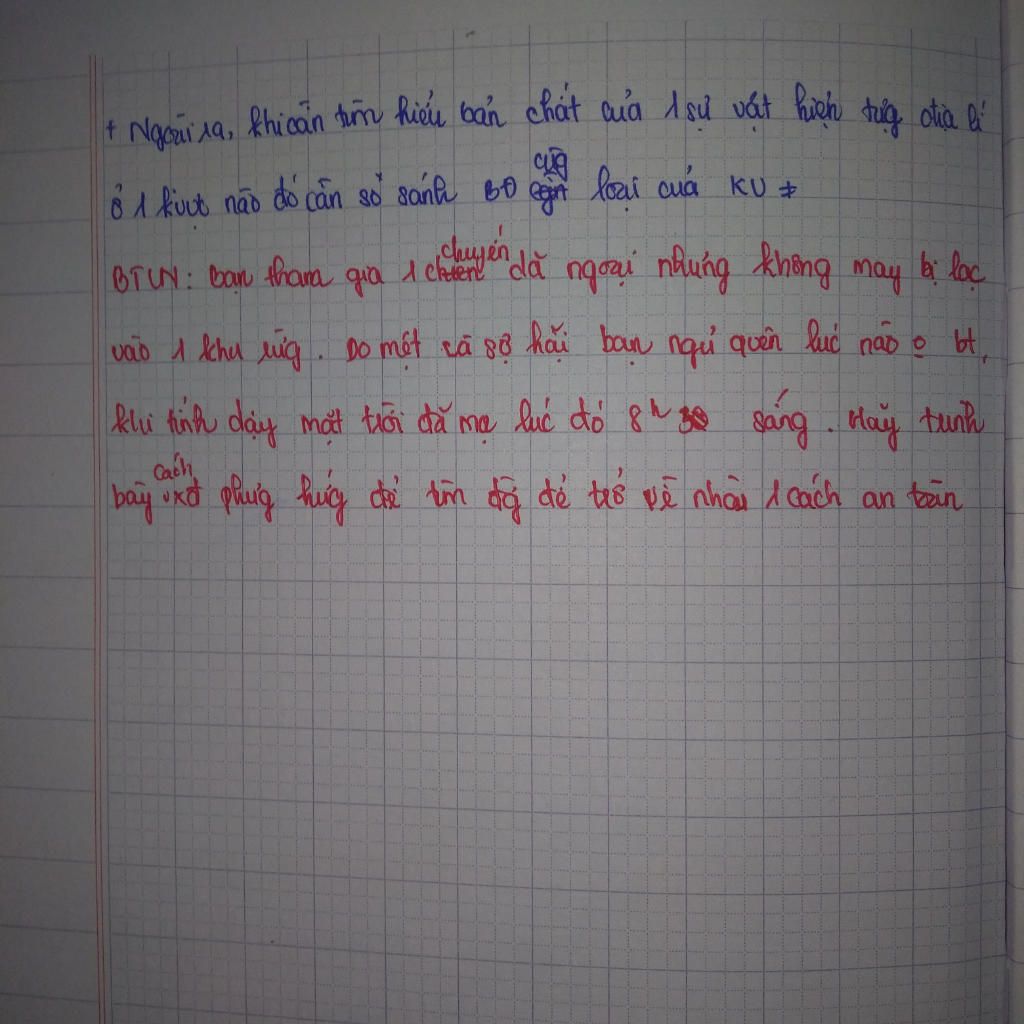 + Ngoài ra, khi cần tìm hiểu bản chất của 1 sự vật hiện tựg địa lí
ở 1 kvưt nào đó cần so sánh BĐ cùg loại của KV ≠
BTVN: bạn tham gia 1 chuyến dã ngoại nhưng không may bị lạc
vào 1 khu rừg. Do mệt và sợ hãi bạn ngủ quên lúc nào o bt,
khi tỉnh dậy mặt trời đã mọc lúc đó 8h sáng. Hãy trình
bày cách xđ phưg hướg để tìm đg để trở về nhà 1 cách an toàn